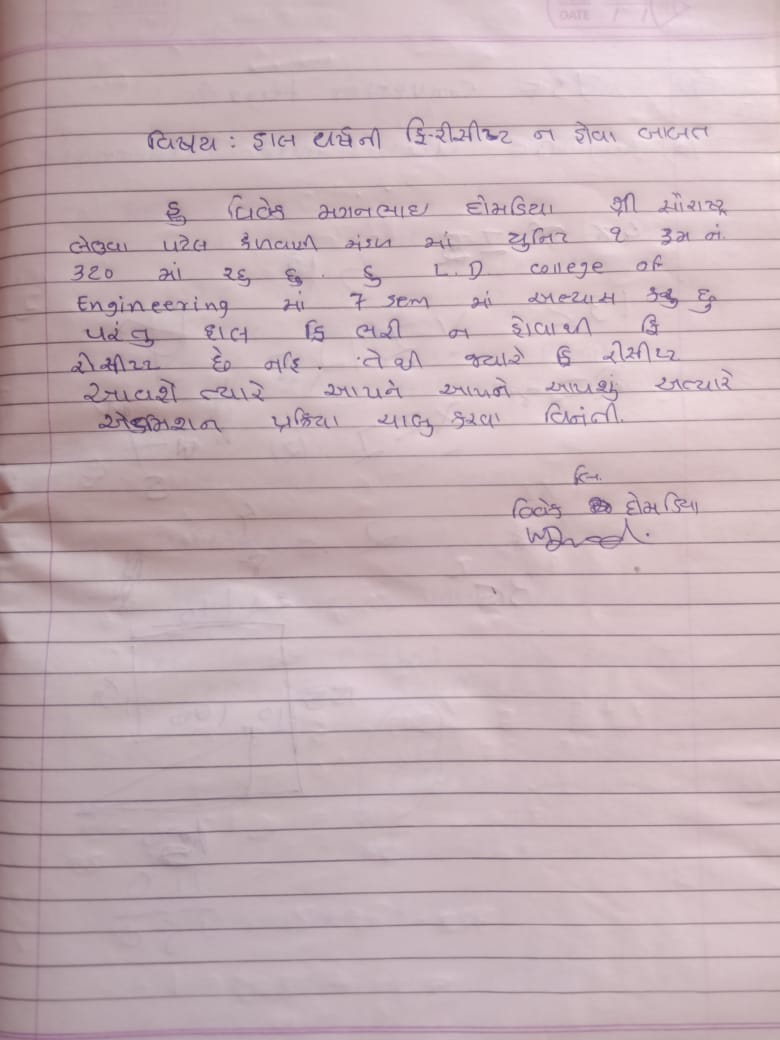 DATE / /
વિષય : હાલ વર્ષની ફિ-રીસીપ્ટ ન હોવા બાબત
હુ વિવેક મગનભાઇ દોમડિયા શ્રી સૌરાષ્ટ્ર
લેઉવા પટેલ કેળવણી મંડળ માં યુનિટ ૧ રૂમ નં.
320 માં રહુ છુ. હુ L.D college of
Engineering માં 7 sem માં અભ્યાસ કરુ છુ
પરંતુ હાલ ફિ ભરી ન હોવાથી ફિ
રીસીપ્ટ છે નહિ. તેથી જ્યારે ફિ રીસીપ્ટ
આવશે ત્યારે આપને આપને આપશું અત્યારે
એડમિશન પ્રક્રિયા ચાલુ કરવા વિનંતી.
લિ.
વિવેક દોમડિયા